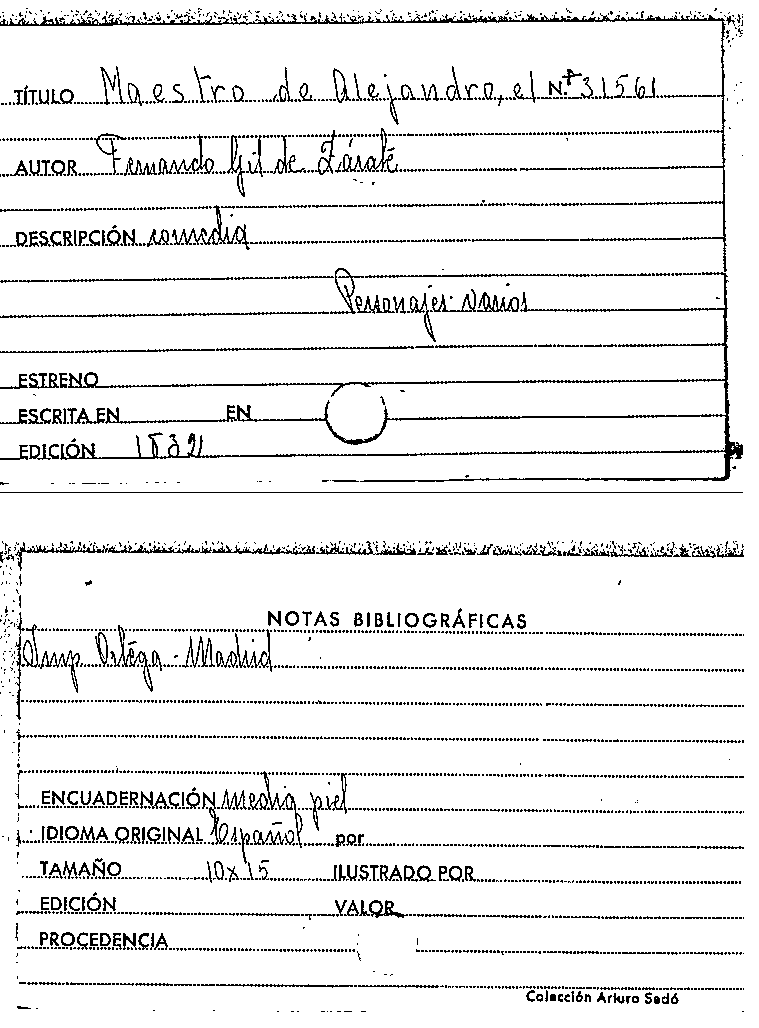 TÍTULO Maestro de Alejandro, el N.º 31561
AUTOR Fernando Gil de Zárate
DESCRIPCIÓN comedia
Personajes: varios
ESTRENO
ESCRITA EN EN
EDICIÓN
NOTAS BIBLIOGRÁFICAS
Imp Ortéga - Madrid
ENCUADERNACIÓN media piel
IDIOMA ORIGINAL Español por
TAMAÑO 10x15 ILUSTRADO POR
EDICIÓN VALOR
PROCEDENCIA
Colección Arturo Sedó